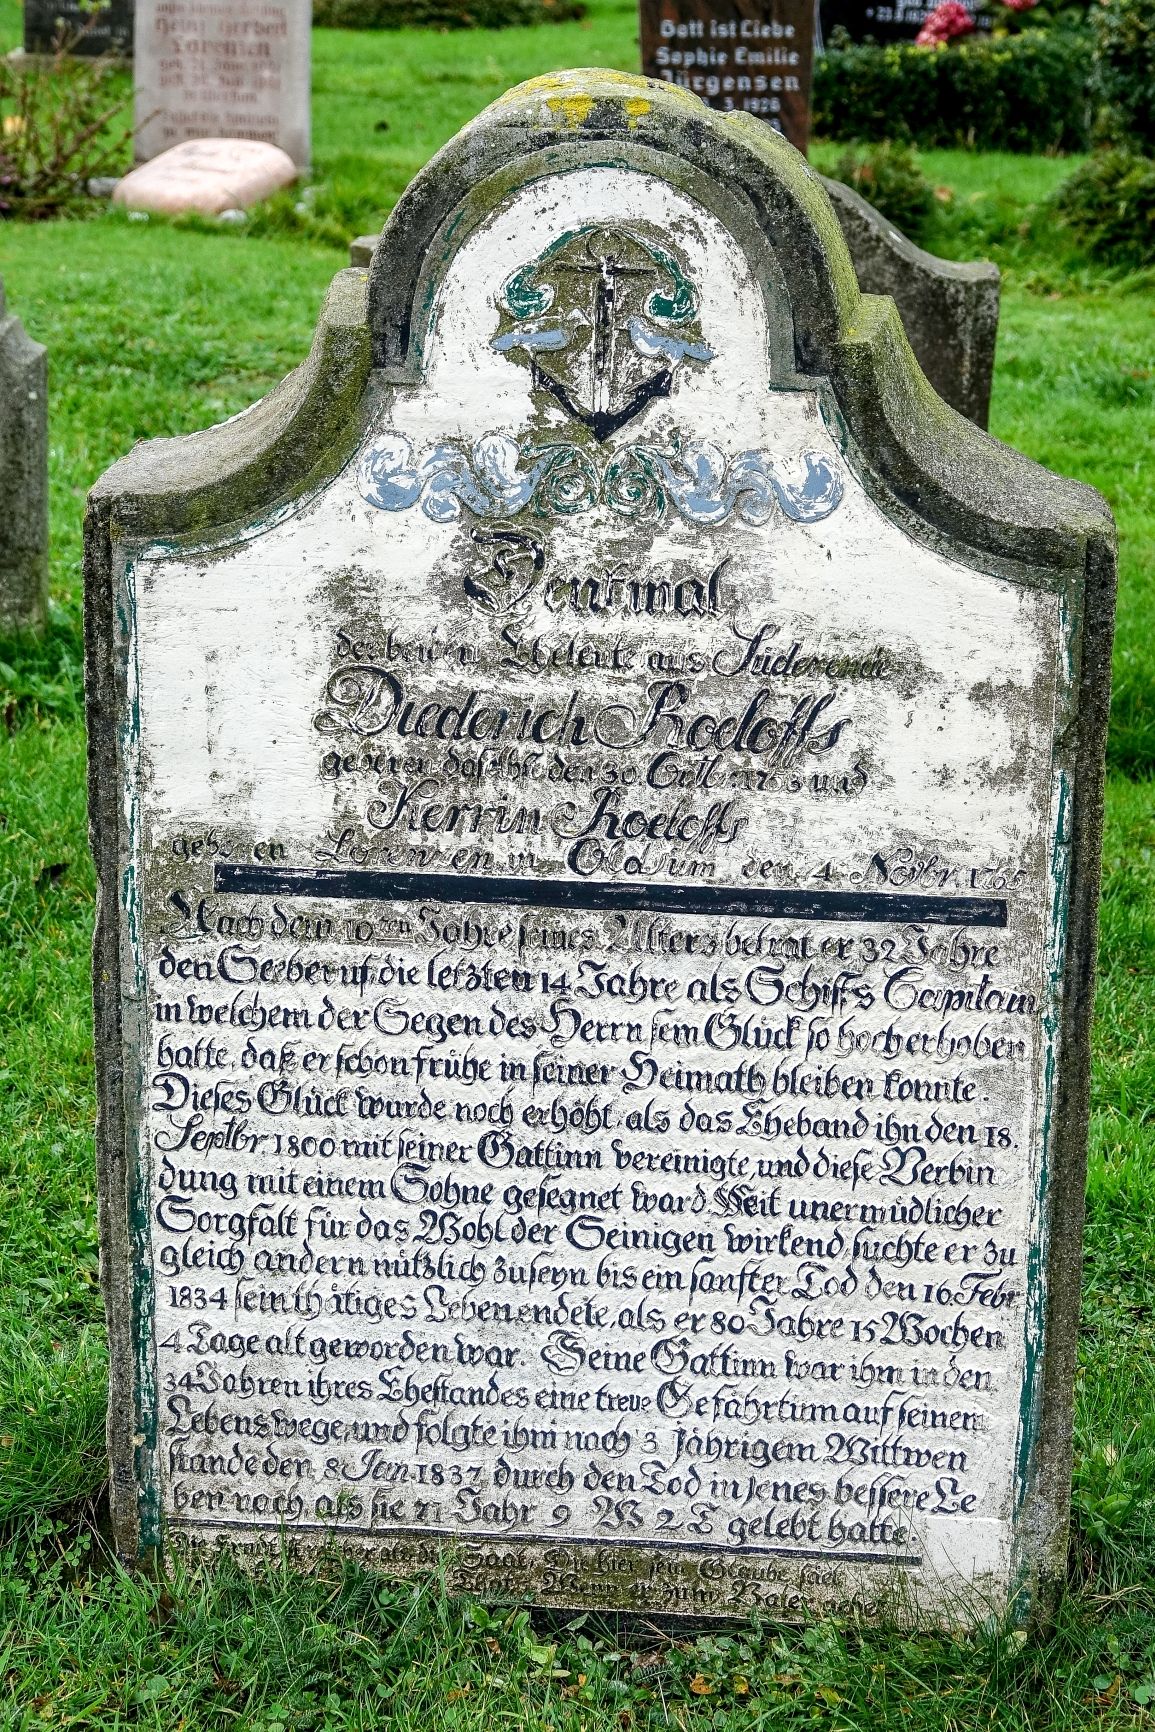 Gott ist Liebe
Sophie Emilie
Jürgensen
1928
Lorenzen
Denkmal
der beiden Eheleute aus Süderende
Diederich Roeloffs
geboren daselbst den 30. Octb. 1753 und
Kerrin Roeloffs
geboren Lorenzen in Oldsum den 4. Novbr. 1765
Nach dem 10ten Jahre seines Alters betrat er 32 Jahre
den Seeberuf, die letzten 14 Jahre als Schiffs Capitain
in welchem der Segen des Herrn sein Glück so hoch erhoben
hatte, daß er schon frühe in seiner Heimath bleiben konnte.
Dieses Glück wurde noch erhöht, als das Eheband ihn den 18.
Septbr. 1800 mit seiner Gattinn vereinigte, und diese Verbin
dung mit einem Sohne gesegnet ward. Seit unermüdlicher
Sorgfalt für das Wohl der Seinigen wirkend, suchte er zu
gleich andern nützlich zu seyn bis ein sanfter Tod den 16. Febr.
1834 sein thätiges Leben endete, als er 80 Jahre 15 Wochen
4 Tage alt geworden war. Seine Gattinn war ihm in den
34 Jahren ihres Ehestandes eine treue Gefährtinn auf seinem
Lebenswege, und folgte ihm nach 3 jährigem Wittwen
stande den 8 Jan. 1837 durch den Tod in jenes bessere Le
ben nach, als sie 71 Jahr 9 W 2 T gelebt hatte.
Saat, Die hier sein Glaube
That, Wenn er zum Vater gehet